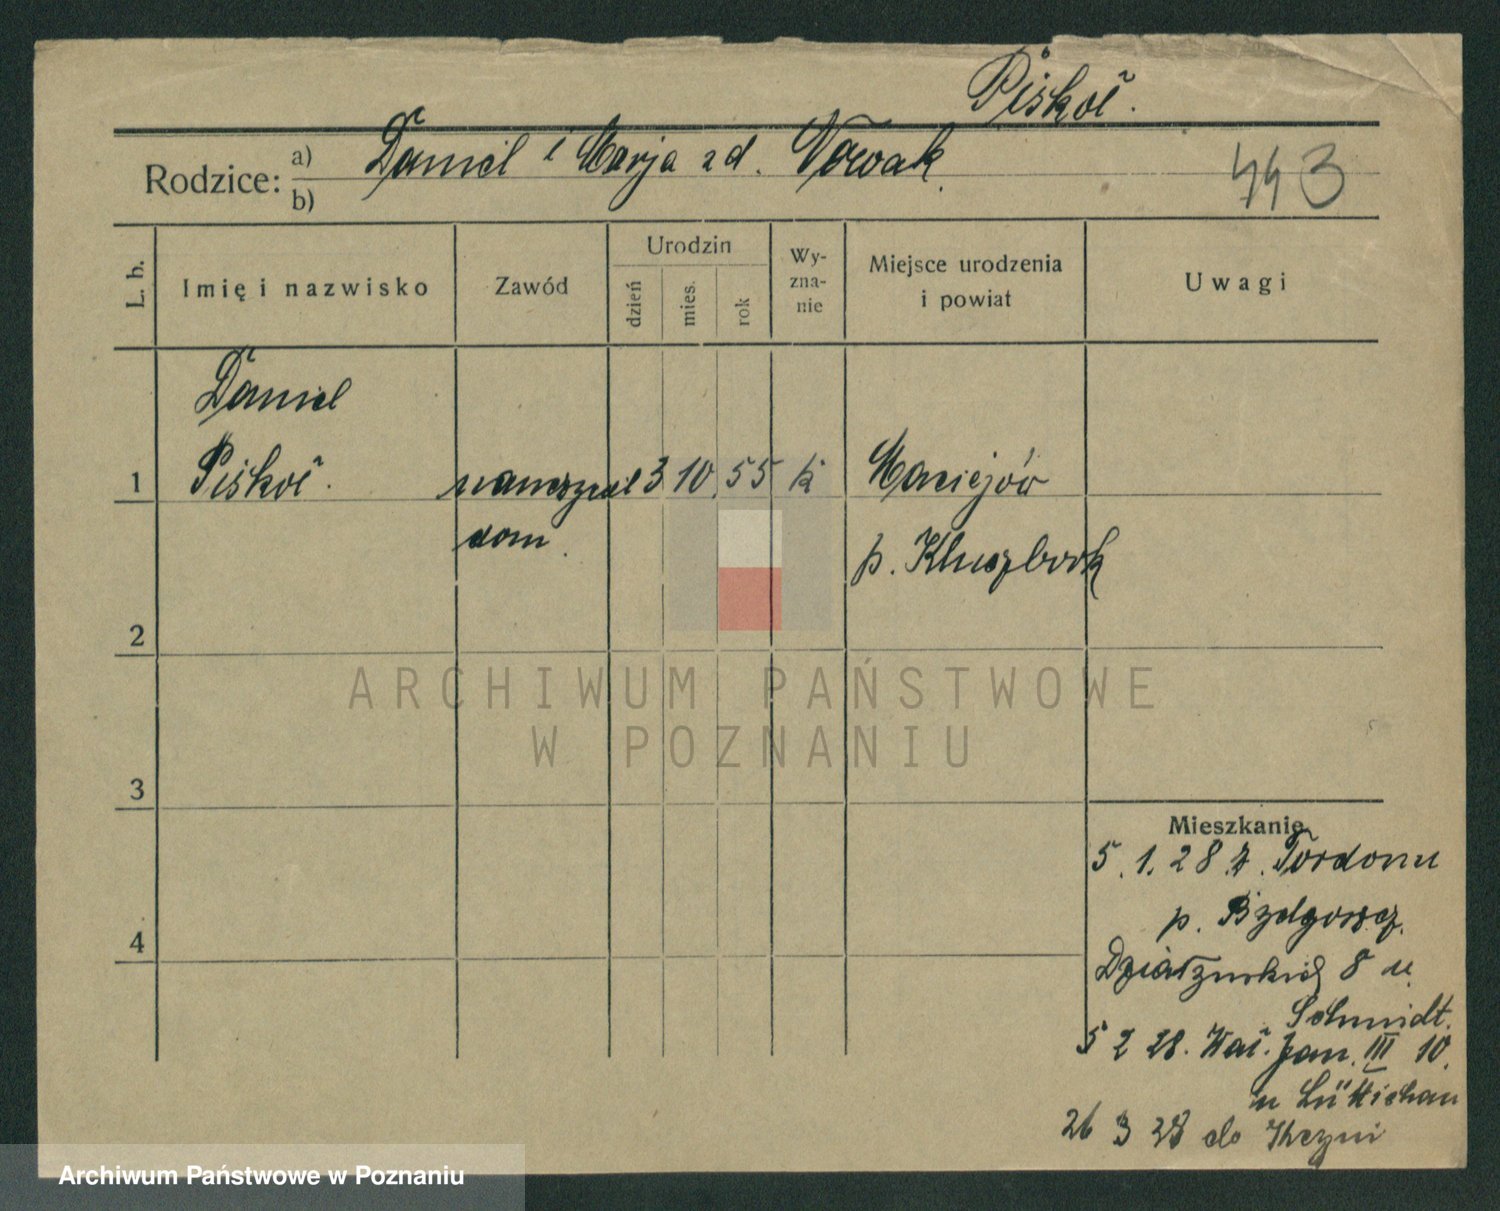 Piskoř.
Rodzice: a) Daniel i Marja zd. Nowak.
b)
443
L. b.
Imię i nazwisko
Zawód
Urodzin
dzień
mies.
rok
Wy-
zna-
nie
Miejsce urodzenia
i powiat
Uwagi
Daniel
1 Piskoř. nauczyciel 3 10 55 k Maciejów
dom. p. Kluczbork
2
3
4
Mieszkanie
5. 1. 28 z Fordonu
p. Bydgoszcz.
Działyńskich 8 u
Schmidt.
5 2 28. Wał. Jan. III 10.
u Lüttichau
26 3 28 do Kcyni
ARCHIWUM PAŃSTWOWE
W POZNANIU
Archiwum Państwowe w Poznaniu